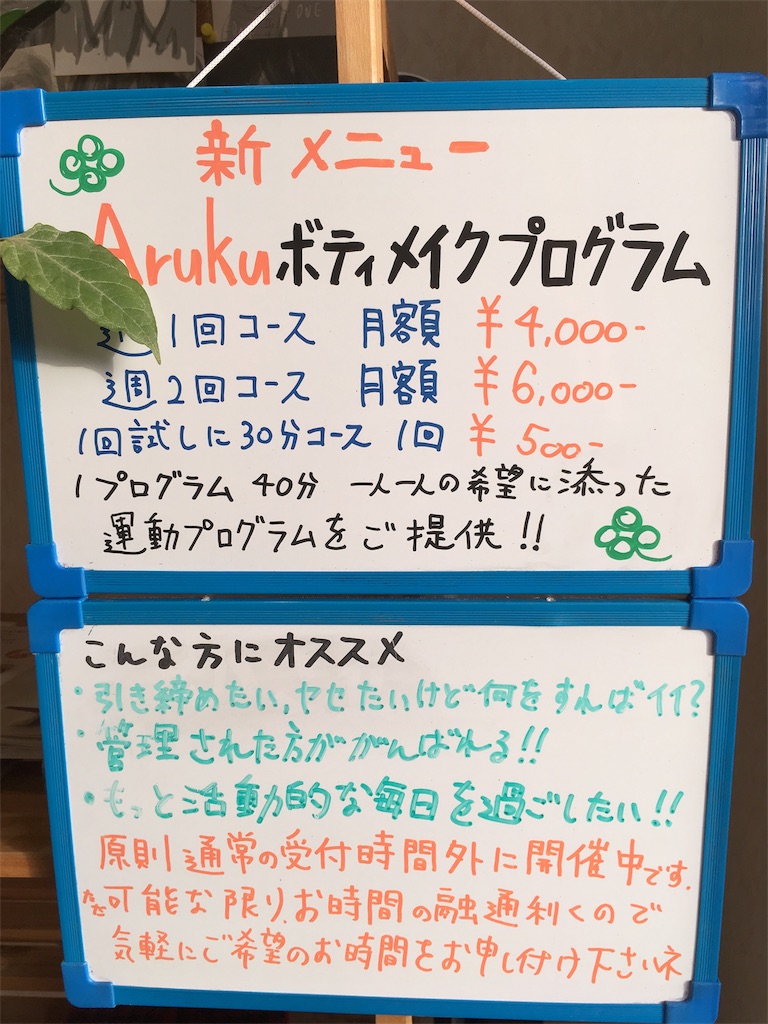 新メニュー
Arukuボディメイクプログラム
週1回コース 月額 ¥4,000-
週2回コース 月額 ¥6,000-
1回試しに30分コース 1回 ¥500-
1プログラム 40分 一人一人の希望に添った
運動プログラムをご提供!!
こんな方にオススメ
・引き締めたい,ヤセたいけど何をすればイイ?
・管理された方ががんばれる!!
・もっと活動的な毎日を過ごしたい!!
原則通常の受付時間外に開催中です.
ただ可能な限り、お時間の融通利くので
気軽にご希望のお時間をお申し付け下さいネ